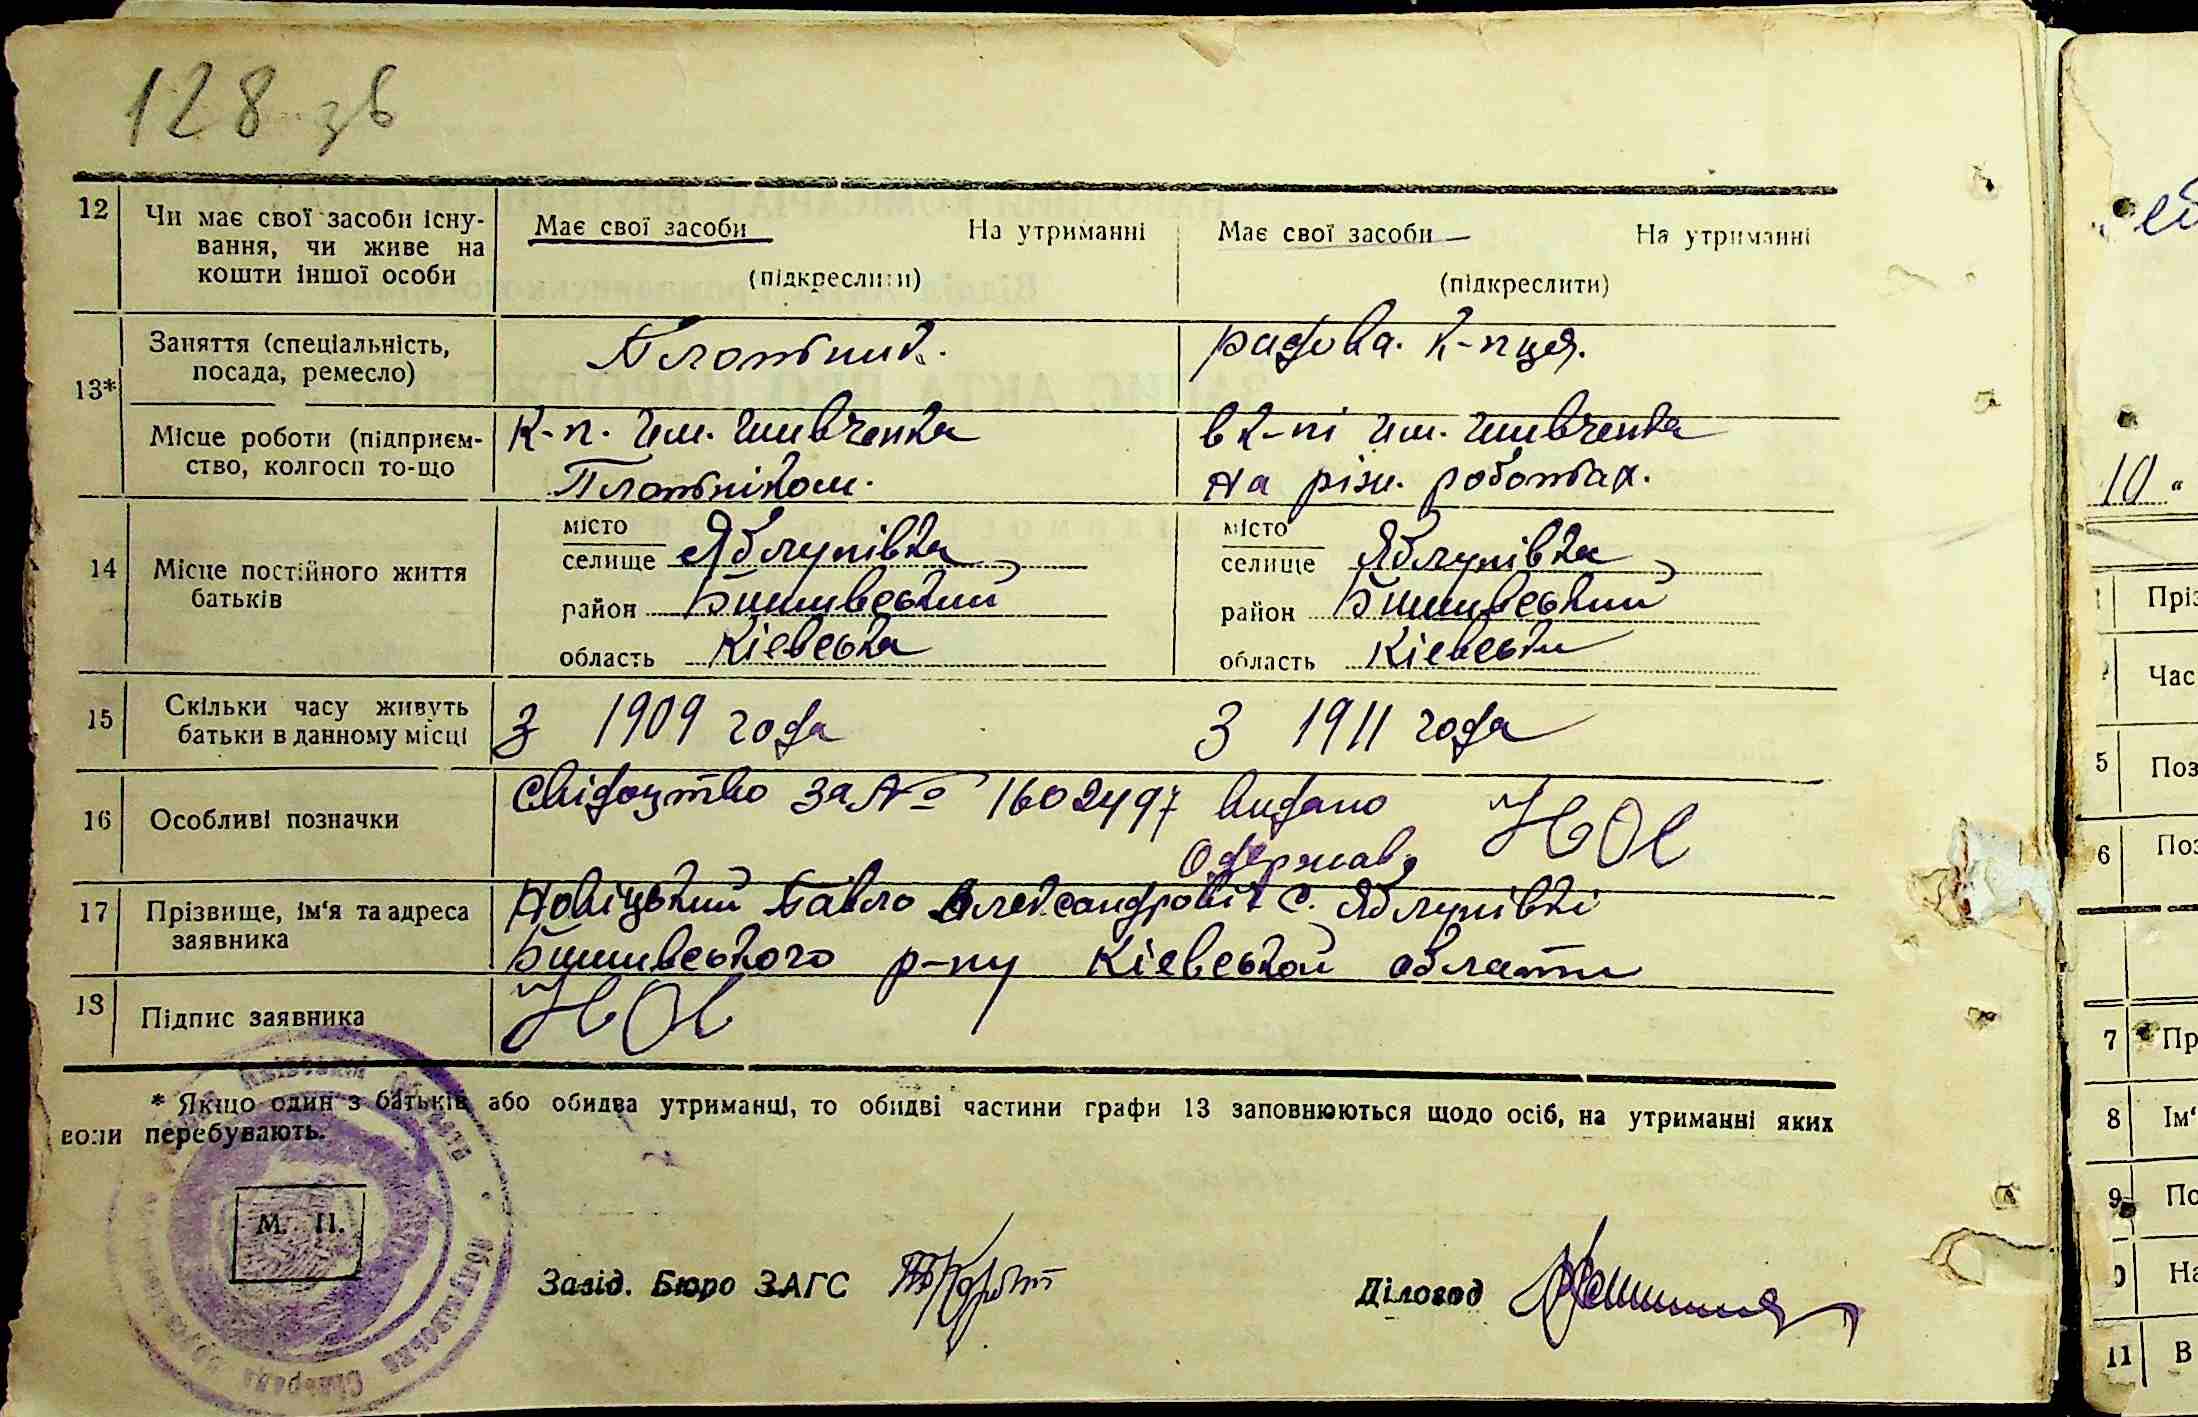 128 зв
12 Чи має свої засоби існу-
вання, чи живе на
кошти іншої особи
Має свої засоби На утриманні
(підкреслити)
Має свої засоби На утриманні
(підкреслити)
13* Заняття (спеціальність,
посада, ремесло)
Плотник.
радова. к-пця.
Місце роботи (підприєм-
ство, колгосп то-що
К-п. им. Шивченка
Плотніком.
в к-пі им. Шивченка
на різн. роботах.
14 Місце постійного життя
батьків
місто
селище Яблунівка
район Бишивський
область Кіевська
місто
селище Яблунівка
район Бишивський
область Кіевська
15 Скільки часу живуть
батьки в данному місці
З 1909 года
З 1911 года
16 Особливі позначки
Свідоцтво за № 1602497 видано
Одержав
17 Прізвище, ім'я та адреса
заявника
Новіцький Павло Александровіч с. Яблунівкі
Бишивського р-ну Кіевської области
18 Підпис заявника
* Якщо один з батьків або обидва утриманці, то обидві частини графи 13 заповнюються щодо осіб, на утриманні яких
вони перебувають.
М. П.
Завід. Бюро ЗАГС
Діловод
10 "
Пріз
Час
5 Поз
6 Поз
7 Пр
8 Ім'
9 По
На
11 В